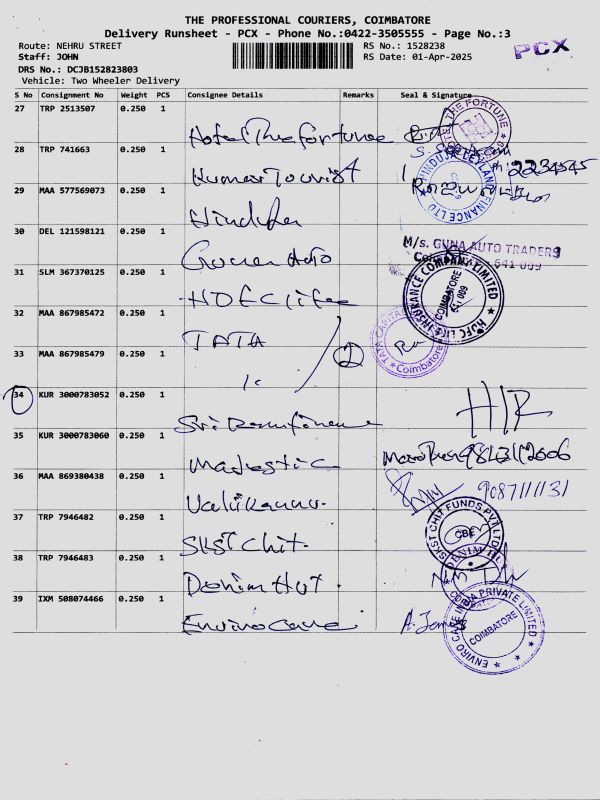 THE PROFESSIONAL COURIERS, COIMBATORE
Delivery Runsheet - PCX - Phone No.:0422-3505555 - Page No.:3
Route: NEHRU STREET
RS No.: 1528238
PCX
Staff: JOHN
RS Date: 01-Apr-2025
DRS No.: DCJB152823803
Vehicle: Two Wheeler Delivery
S No Consignment No Weight PCS Consignee Details Remarks Seal & Signature
27 TRP 2513507 0.250 1 Hotel The fortune
28 TRP 741663 0.250 1 Kumar Tourist 2234545
29 MAA 577569073 0.250 1 Hinduja HINDUJA LEYLAND FINANCE LTD
30 DEL 121598121 0.250 1 Guna Auto M/s. GUNA AUTO TRADERS
641 009
31 SLM 367370125 0.250 1 HDFC life HDFC LIFE INSURANCE COMPANY LIMITED COIMBATORE 641 009
32 MAA 867985472 0.250 1 TATA TATA CAPITAL Coimbatore
33 MAA 867985479 0.250 1 2
34 KUR 3000783052 0.250 1
35 KUR 3000783060 0.250 1 Majestic
36 MAA 869380438 0.250 1
37 TRP 7946482 0.250 1 SKST Chit. SKST CHIT FUNDS PVT LTD CBE
38 TRP 7946483 0.250 1 Denim Hut.
39 IXM 508074466 0.250 1 Enviro care A. James ENVIRO CARE INDIA PRIVATE LIMITED COIMBATORE